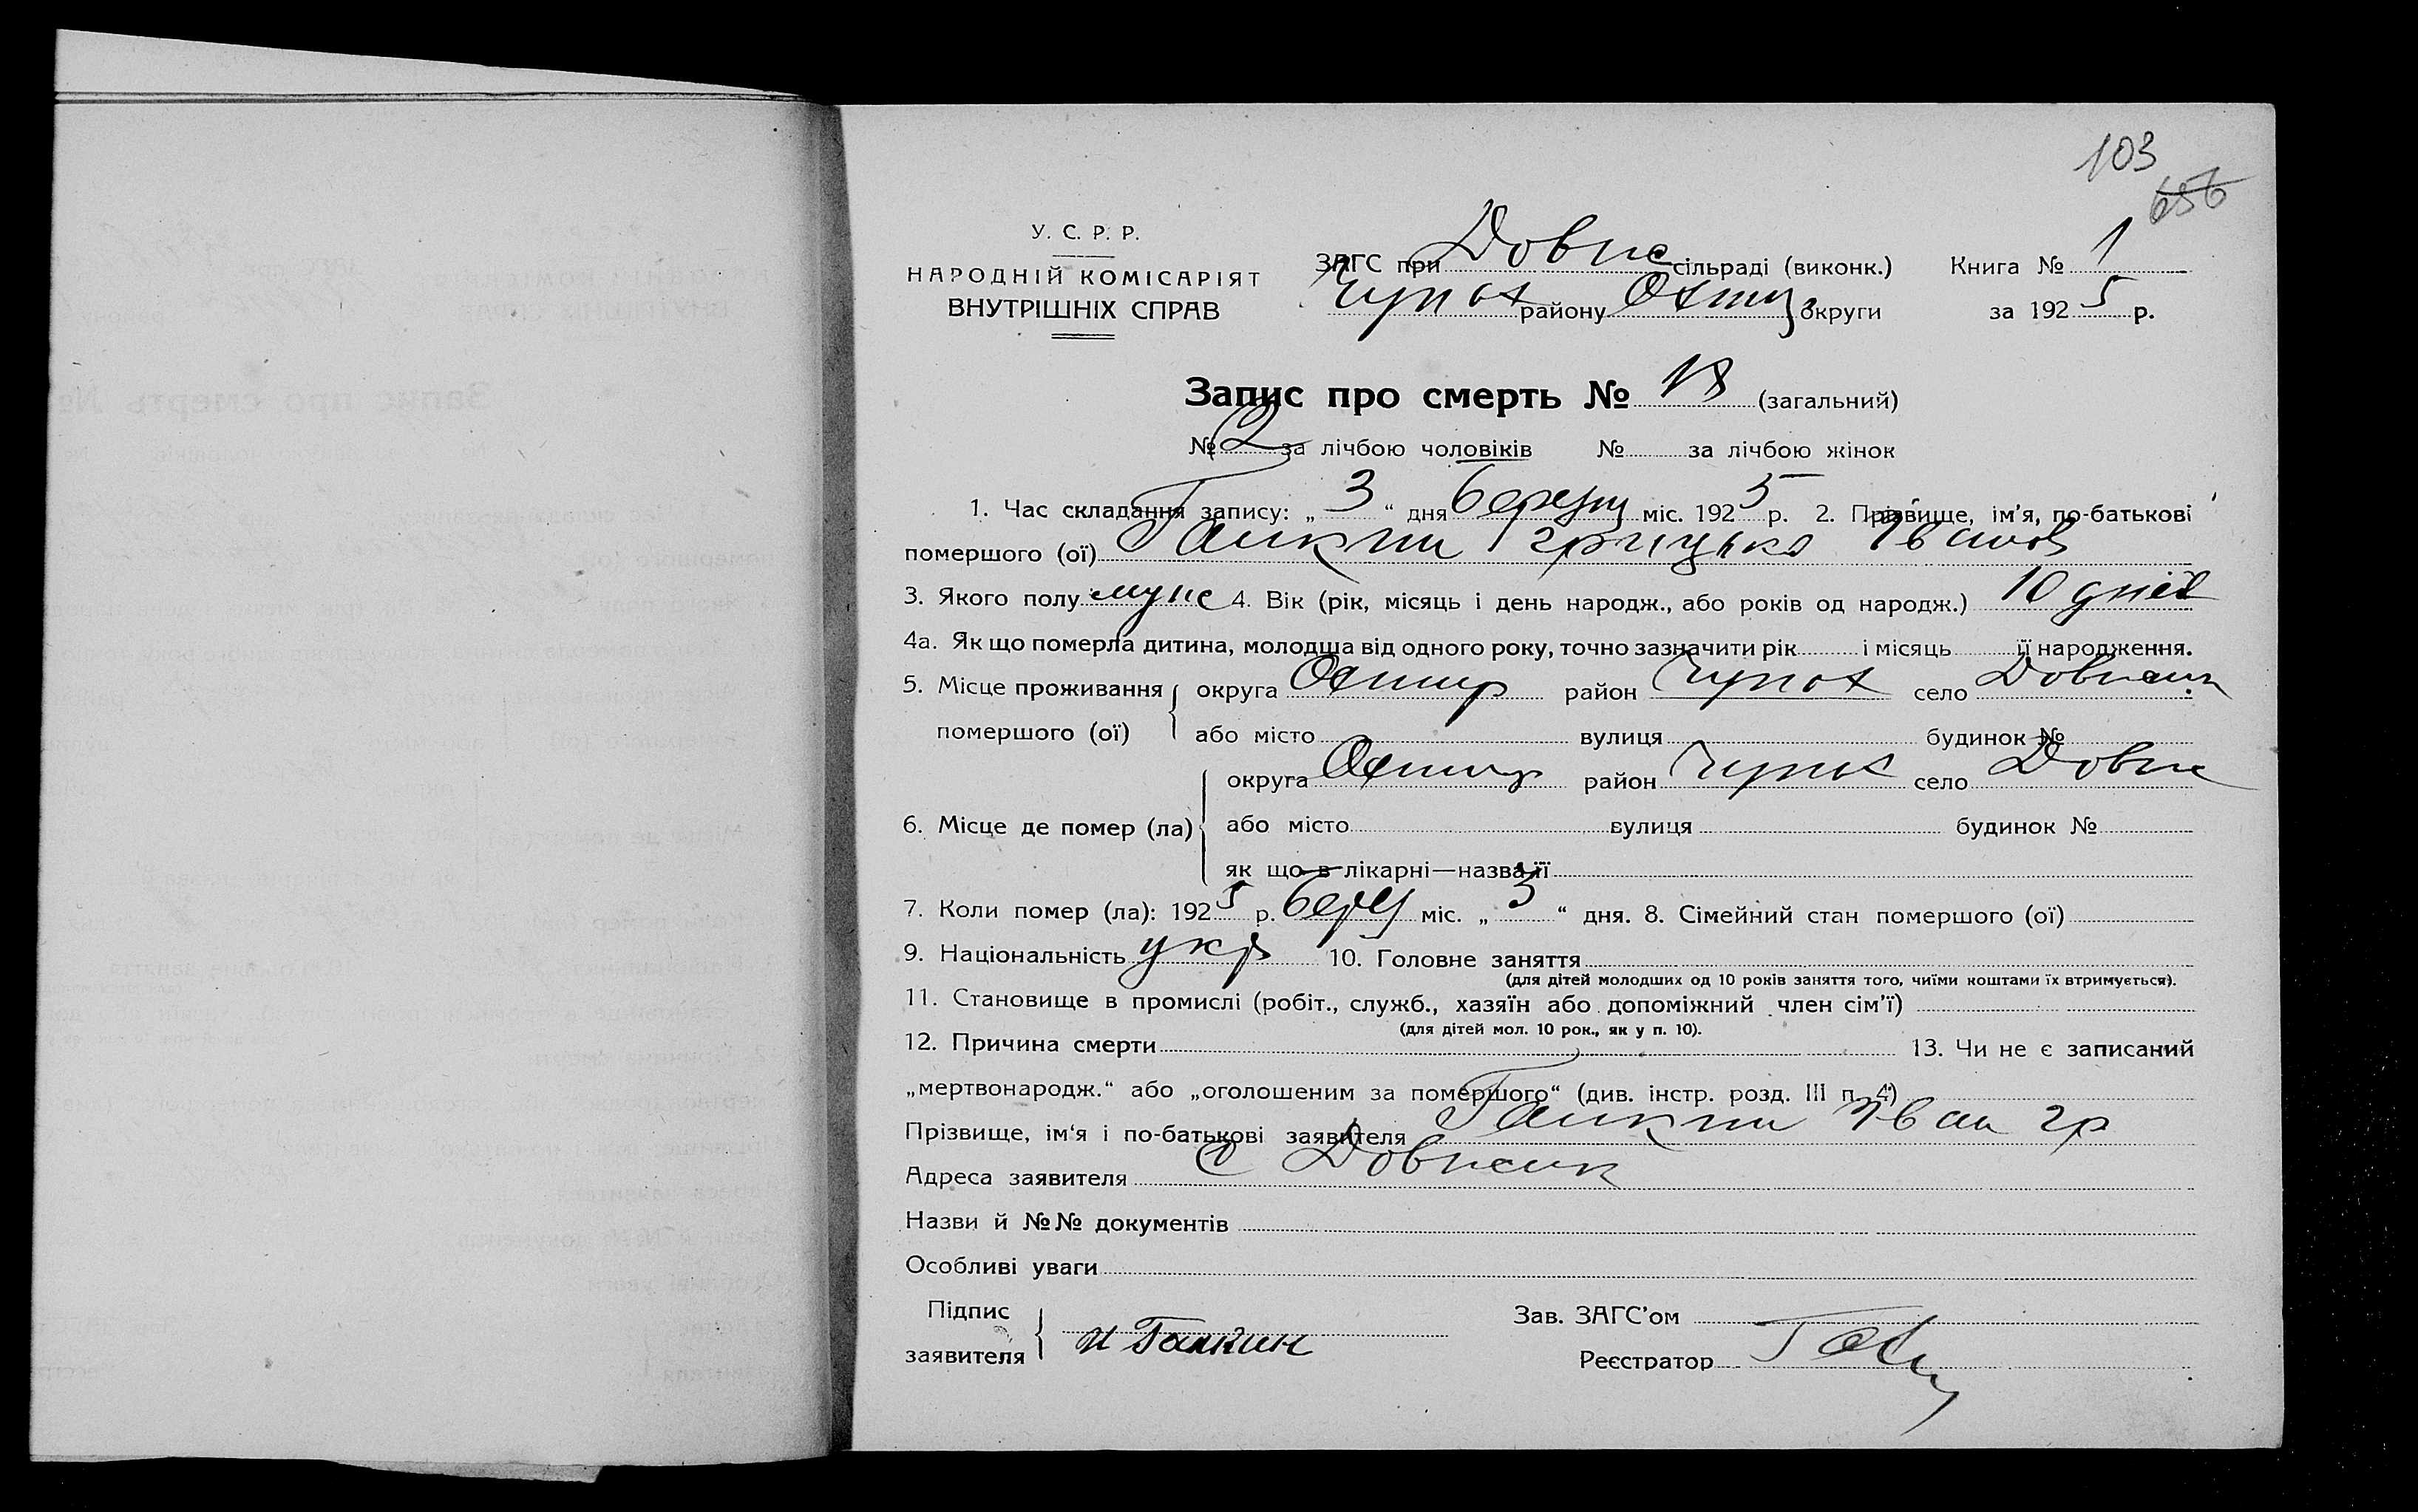 103
656
У. С. Р. Р.
НАРОДНІЙ КОМІСАРІЯТ
ВНУТРІШНІХ СПРАВ
ЗАГС при Довж сільраді (виконк.) Книга № 1
Чупах району Охтир округи за 1925 р.
Запис про смерть № 18 (загальний)
№ 2 за лічбою чоловіків № за лічбою жінок
1. Час складання запису: „ 3 “ дня березня міс. 1925 р. 2. Прізвище, ім’я, по-батькові
помершого (ої) Галкин Грицько Іванов
3. Якого полу муж 4. Вік (рік, місяць і день народж., або років од народж.) 10 днів
4а. Як що померла дитина, молодша від одного року, точно зазначити рік і місяць її народження.
5. Місце проживання округа Охтир район Чупах село Довжик
помершого (ої) або місто вулиця будинок №
округа Охтир район Чупах село Довж
6. Місце де помер (ла) або місто вулиця будинок №
як що в лікарні—назва її
7. Коли помер (ла): 1925 р. бер міс. „ 3 “ дня. 8. Сімейний стан помершого (ої)
9. Національність укр 10. Головне заняття
(для дітей молодших од 10 років заняття того, чиїми коштами їх втримується).
11. Становище в промислі (робіт., служб., хазяїн або допоміжний член сім’ї)
(для дітей мол. 10 рок., як у п. 10).
12. Причина смерти 13. Чи не є записаний
„мертвонародж.“ або „оголошеним за помершого“ (див. інстр. розд. III п. 4)
Прізвище, ім‘я і по-батькові заявителя Галкин Іван Гр
Адреса заявителя с Довжик
Назви й №№ документів
Особливі уваги
Підпис
заявителя и Галкин
Зав. ЗАГС’ом
Реєстратор